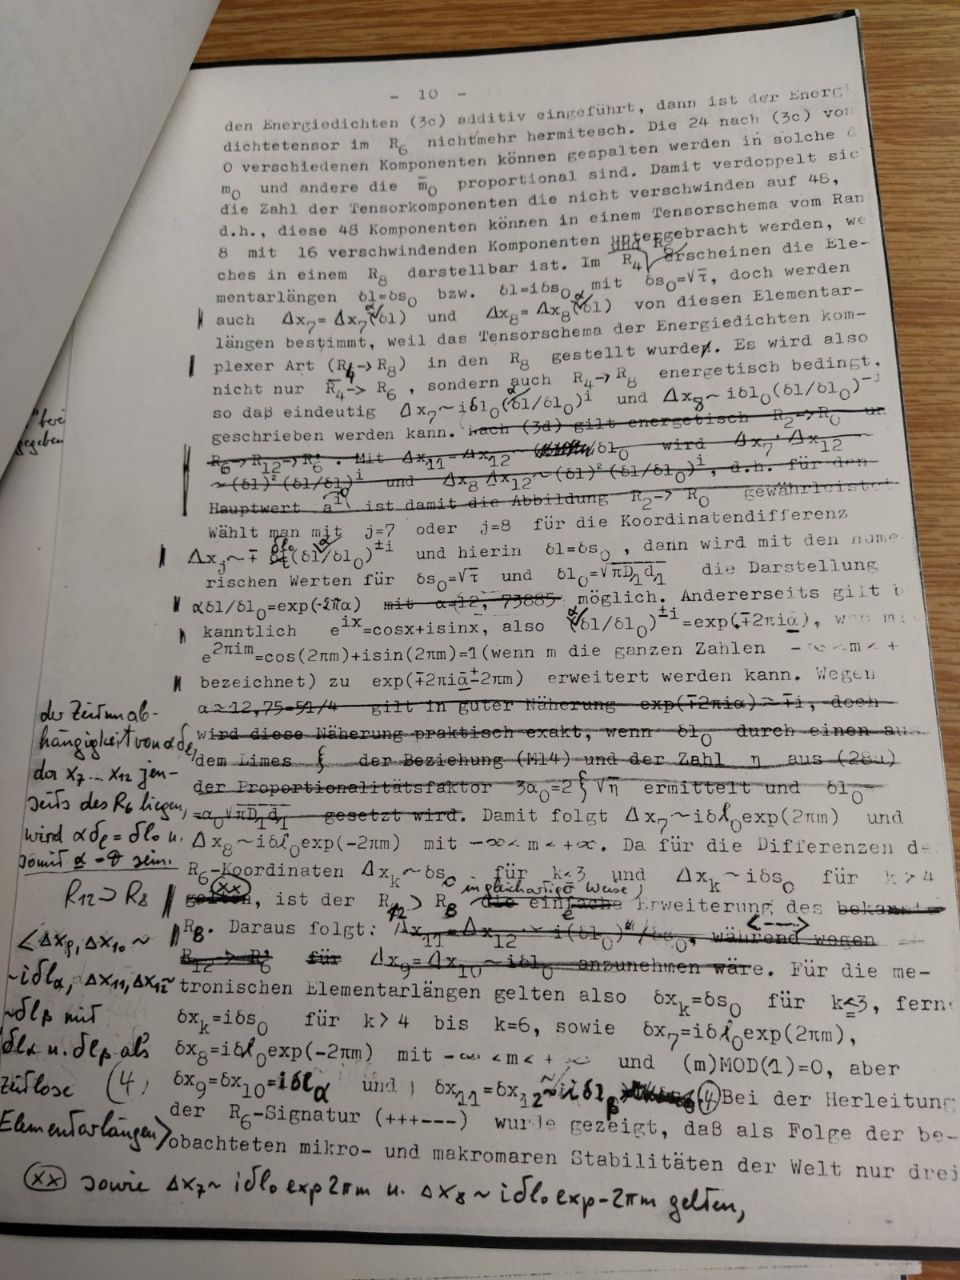 - 10 -
den Energiedichten (3c) additiv eingeführt, dann ist der Energi
dichtetensor im R₆ nicht mehr hermitesch. Die 24 nach (3c) von
0 verschiedenen Komponenten können gespalten werden in solche
m₀ und andere die m̄₀ proportional sind. Damit verdoppelt sic
die Zahl der Tensorkomponenten die nicht verschwinden auf 48,
d.h., diese 48 Komponenten können in einem Tensorschema vom Ran
8 mit 16 verschwindenden Komponenten untergebracht werden, we
und R₆
ches in einem R₈ darstellbar ist. Im R₄ erscheinen die Ele-
mentarlängen δl=δs₀ bzw. δl=iδs₀ mit δs₀=√τ̄, doch werden
auch Δx₇=Δx₇(αδl) und Δx₈=Δx₈(αδl) von diesen Elementar-
längen bestimmt, weil das Tensorschema der Energiedichten kom-
plexer Art (R₄→R₈) in den R₈ gestellt wurde. Es wird also
nicht nur R₄→R₆, sondern auch R₄→R₈ energetisch bedingt,
so daß eindeutig Δx₇~iδl₀(αδl/δl₀)ⁱ und Δx₈~iδl₀(δl/δl₀)⁻ⁱ
geschrieben werden kann. Nach (3d) gilt energetisch R₂→R₀ un
R₆→R₁₂→R₆'. Mit Δx₁₁=Δx₁₂ δl₀ wird Δx₇·Δx₁₂
~(δl)²(δl/δl)ⁱ und Δx₈Δx₁₂~(δl)²(δl/δl₀)ⁱ, d.h. für den
Hauptwert aⁱ ist damit die Abbildung R₂→R₀ gewährleistet
Wählt man mit j=7 oder j=8 für die Koordinatendifferenz
Δxⱼ~∓ δl₀(αδl/δl₀)^±i und hierin δl=δs₀, dann wird mit den nume
rischen Werten für δs₀=√τ̄ und δl₀=√πD₁d₁ die Darstellung
αδl/δl₀=exp(-2πα) mit α=12,73885 möglich. Andererseits gilt b
kanntlich e^ix=cosx+isinx, also (αδl/δl₀)^±i=exp(∓2πiα),
e^2πim=cos(2πm)+isin(2πm)=1(wenn m die ganzen Zahlen -∞<m<+
bezeichnet) zu exp(∓2πiα±2πm) erweitert werden kann. Wegen
α≈12,75=51/4 gilt in guter Näherung exp(∓2πiα)~∓i, doch
wird diese Näherung praktisch exakt, wenn δl₀ durch einen au
dem Limes ξ der Beziehung (M14) und der Zahl η aus (28a)
der Proportionalitätsfaktor 3α₀=2ξ√η ermittelt und δl₀
=α₀√πD₁d₁ gesetzt wird. Damit folgt Δx₇~iδl₀exp(2πm) und
Δx₈~iδl₀exp(-2πm) mit -∞<m<+∞. Da für die Differenzen d
R₆-Koordinaten Δxₖ~δs₀ für k≤3 und Δxₖ~iδs₀ für k>4
in gleichartiger Weise
gelten (xx), ist der R₁₂⊃R₈ die einfache Erweiterung des bekannten
R₈. Daraus folgt: Δx₁₁=Δx₁₂ ~ i(δl₀)/δs₀, während wegen
R₁₂→R₆' für Δx₉=Δx₁₀~iδl₀ anzunehmen wäre. Für die me-
tronischen Elementarlängen gelten also δxₖ=δs₀ für k≤3, fern
δxₖ=iδs₀ für k>4 bis k=6, sowie δx₇=iδl₀exp(2πm),
δx₈=iδl₀exp(-2πm) mit -∞<m<+∞ und (m)MOD(1)=0, aber
δx₉=δx₁₀=iδlα und δx₁₁=δx₁₂~iδlβ (4) Bei der Herleitung
der R₆-Signatur (+++---) wurde gezeigt, daß als Folge der be-
obachteten mikro- und makromaren Stabilitäten der Welt nur drei
(xx) sowie Δx₇~iδl₀ exp 2πm u. Δx₈~iδl₀ exp-2πm gelten,
"bei
gegeben
der Zeitunab-
hängigkeit von αδl,
da x₇...x₁₂ jen-
seits des R₆ liegen,
wird αδl=δl₀ u.
somit
sein.
R₁₂⊃R₈
<Δx₉,Δx₁₀~
~iδlα, Δx₁₁,Δx₁₂~
~δlβ mit
δlα u. δlβ als
zeitlose (4)
Elementarlängen>